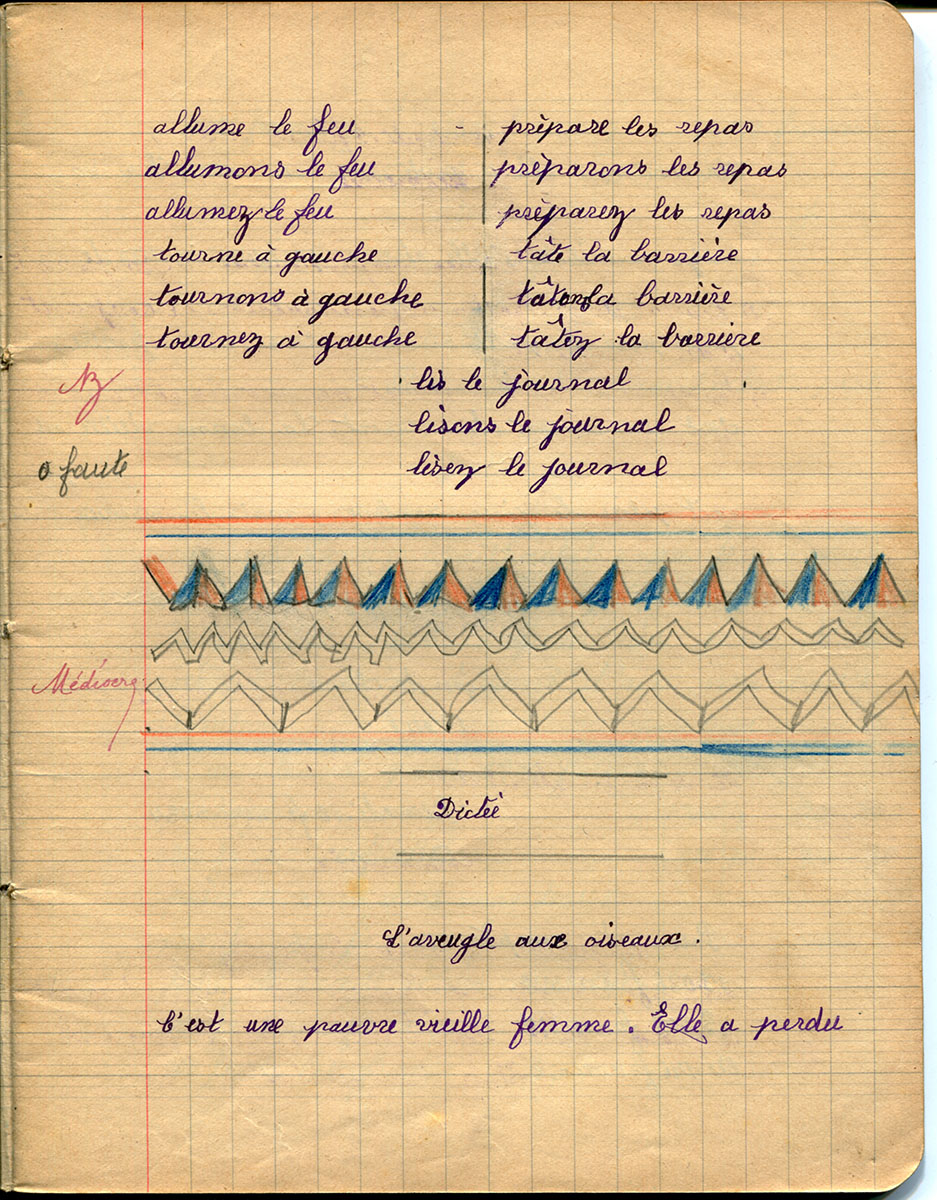 allume le feu
allumons le feu
allumez le feu
tourne à gauche
tournons à gauche
tournez à gauche
prépare les repas
préparons les repas
préparez les repas
tâte la barrière
tâtons la barrière
tâtez la barrière
lis le journal
lisons le journal
lisez le journal
0 faute
Médiocre
Dictée
L'aveugle aux oiseaux.
C'est une pauvre vieille femme. Elle a perdu